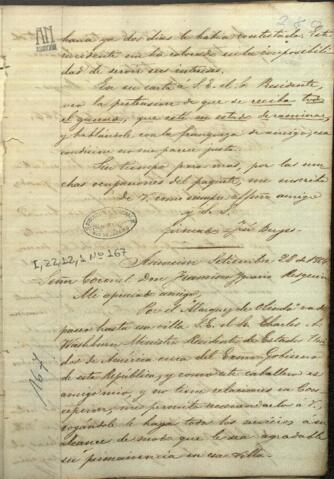 288
AN
haria ya dos dias le habia contestado. Este
incidente me ha colocado en la imposibili
dad de servir sus intereses.
En su carta á S. E. el S. Residente,
veo la pretension de que se reciba todo
el ganado, que está en estado de caminar,
y hablandole con la franqueza de amigo, esa
condicion no me parece justa.
Sin tiempo para mas, por las mu
chas ocupaciones del paquete, me suscribo
de V. como siempre affmo amigo
y S. S.
firmado José Berges
I, 22, 12, 1 Nº 167
Asuncion Setiembre 28 de 1864
Señor Coronel Don Francisco Ysidoro Resquin
Mi apreciado amigo.
Por el Marques de Olinda va de
paseo hasta esa villa S. E. el S. Charles A.
Washburn Ministro Residente de Estados Uni
dos de América cerca del Exmo. Gobierno
de esta República, y como este caballero es
amigo mio, y no tiene relaciones en Con
cepcion, me permito recomendarlo á V.
rogandole le haga todos los servicios á su
alcance de modo que le sea agradable
su permanencia en esa villa.
1647